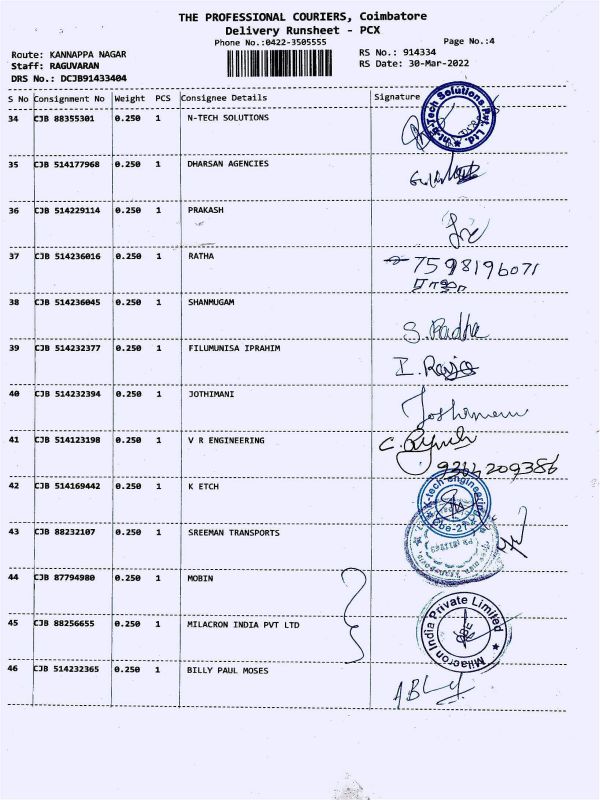 THE PROFESSIONAL COURIERS, Coimbatore
Delivery Runsheet - PCX
Phone No.:0422-3505555
Page No.:4
Route: KANNAPPA NAGAR
RS No.: 914334
Staff: RAGUVARAN
RS Date: 30-Mar-2022
DRS No.: DCJB91433404
S No Consignment No Weight PCS Consignee Details Signature
34 CJB 88355301 0.250 1 N-TECH SOLUTIONS
Tech Solutions Pvt. Ltd.
35 CJB 514177968 0.250 1 DHARSAN AGENCIES
36 CJB 514229114 0.250 1 PRAKASH
37 CJB 514236016 0.250 1 RATHA 7598196071
38 CJB 514236045 0.250 1 SHANMUGAM
S. Radha
39 CJB 514232377 0.250 1 FILUMUNISA IPRAHIM
40 CJB 514232394 0.250 1 JOTHIMANI
41 CJB 514123198 0.250 1 V R ENGINEERING
42 CJB 514169442 0.250 1 K ETCH
43 CJB 88232107 0.250 1 SREEMAN TRANSPORTS
44 CJB 87794980 0.250 1 MOBIN
45 CJB 88256655 0.250 1 MILACRON INDIA PVT LTD
Milacron India Private Limited
CBE
46 CJB 514232365 0.250 1 BILLY PAUL MOSES